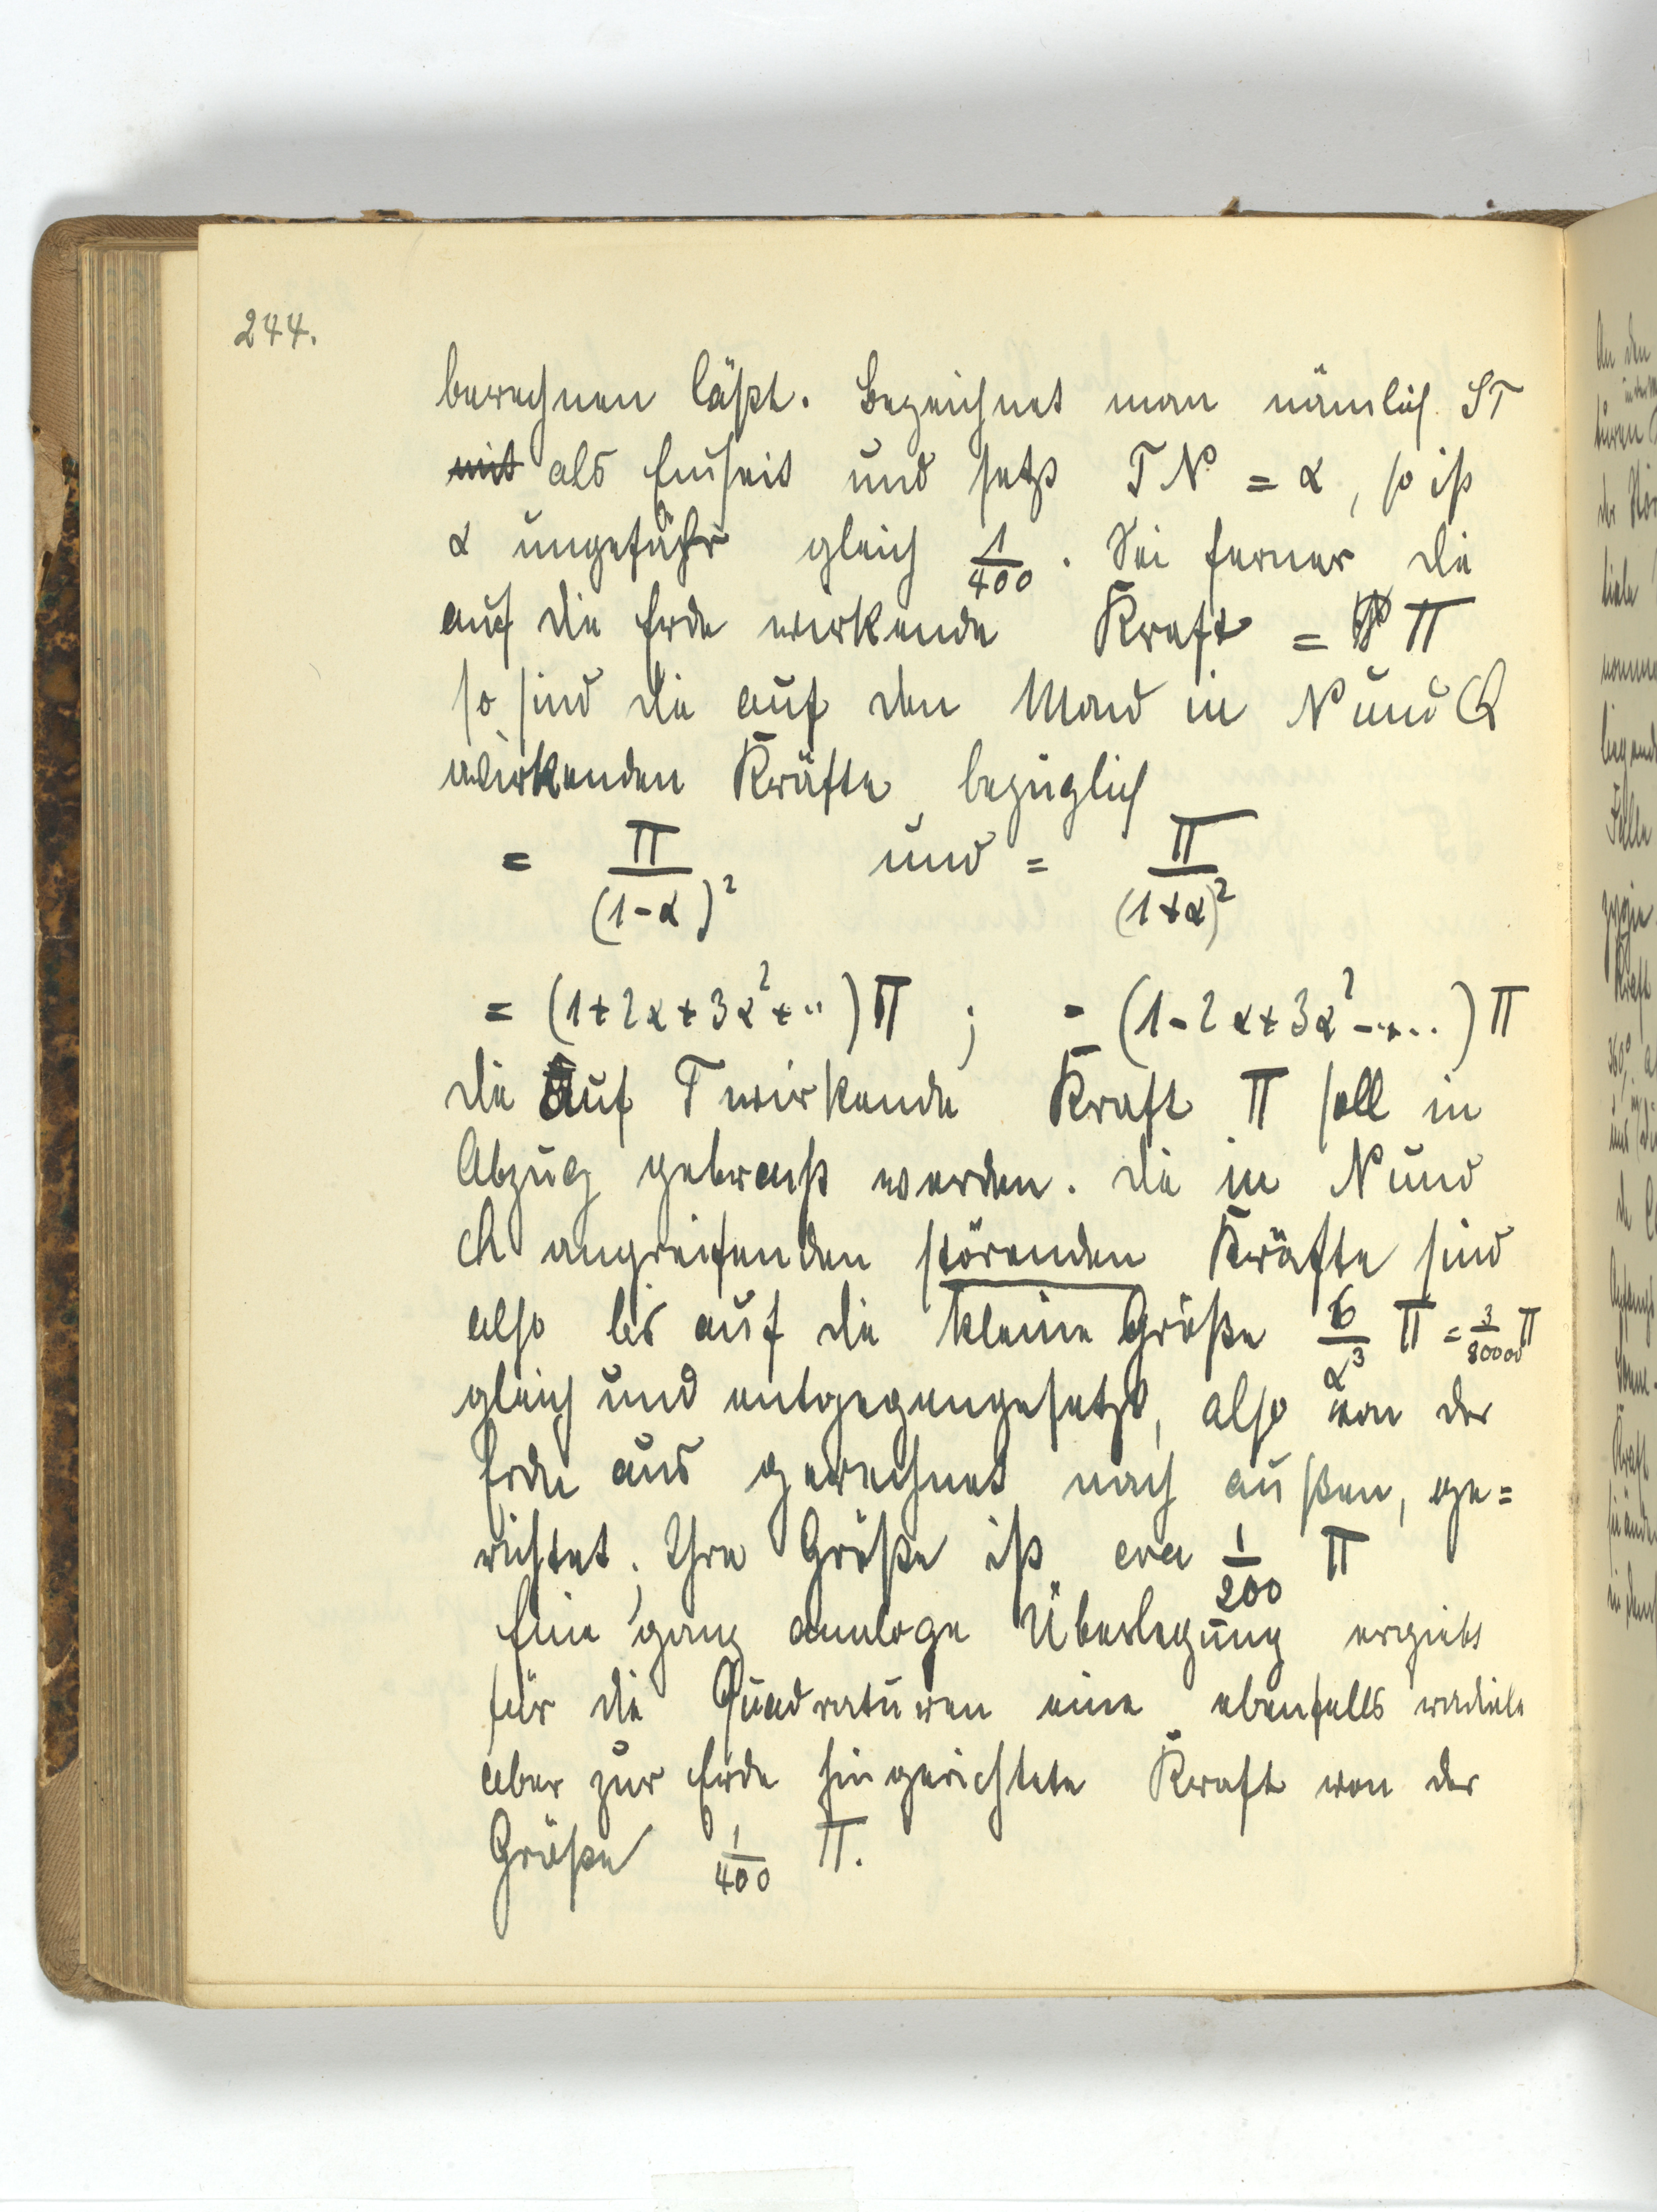 244.
berechnen läßt. Bezeichnet man nämlich ST
mit als Einheit und setzt TN = α, so ist
α ungefähr gleich 1/400. Sei ferner die
auf die Erde wirkende Kraft = Π
so sind die auf den Mond in N und A
wirkenden Kräfte bezüglich
= Π/(1-α)² und = Π/(1+α)²
= (1+2α+3α²+..)Π ; = (1-2α+3α²-+..)Π
die auf T wirkende Kraft Π soll in
Abzug gebracht werden. Die in N und
A angreifenden störenden Kräfte sind
also bis auf die kleine Größe 6/α³ Π = 3/80000 Π
gleich und entgegengesetzt, also von der
Erde aus gerechnet nach außen, ge=
richtet; Ihre Größe ist circa 1/200 Π
Eine ganz analoge Überlegung ergiebt
für die Quadraturen eine ebenfalls radiale
aber zur Erde hingerichtete Kraft von der
Größe 1/400 Π.